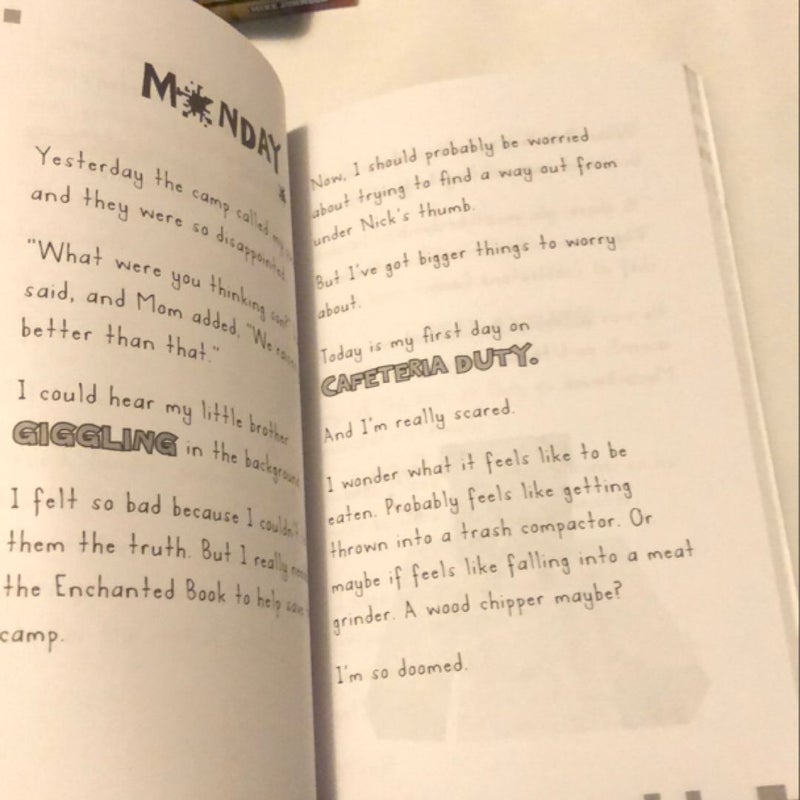 MONDAY
Yesterday the camp called my
and they were so disappointed.
"What were you thinking son?"
said, and Mom added, "We
better than that."
I could hear my little brother
GIGGLING in the background
I felt so bad because I couldn't
them the truth. But I really
the Enchanted Book to help save
camp.
Now, I should probably be worried
about trying to find a way out from
under Nick's thumb.
But I've got bigger things to worry
about.
Today is my first day on
CAFETERIA DUTY.
And I'm really scared.
I wonder what it feels like to be
eaten. Probably feels like getting
thrown into a trash compactor. Or
maybe if feels like falling into a meat
grinder. A wood chipper maybe?
I'm so doomed.